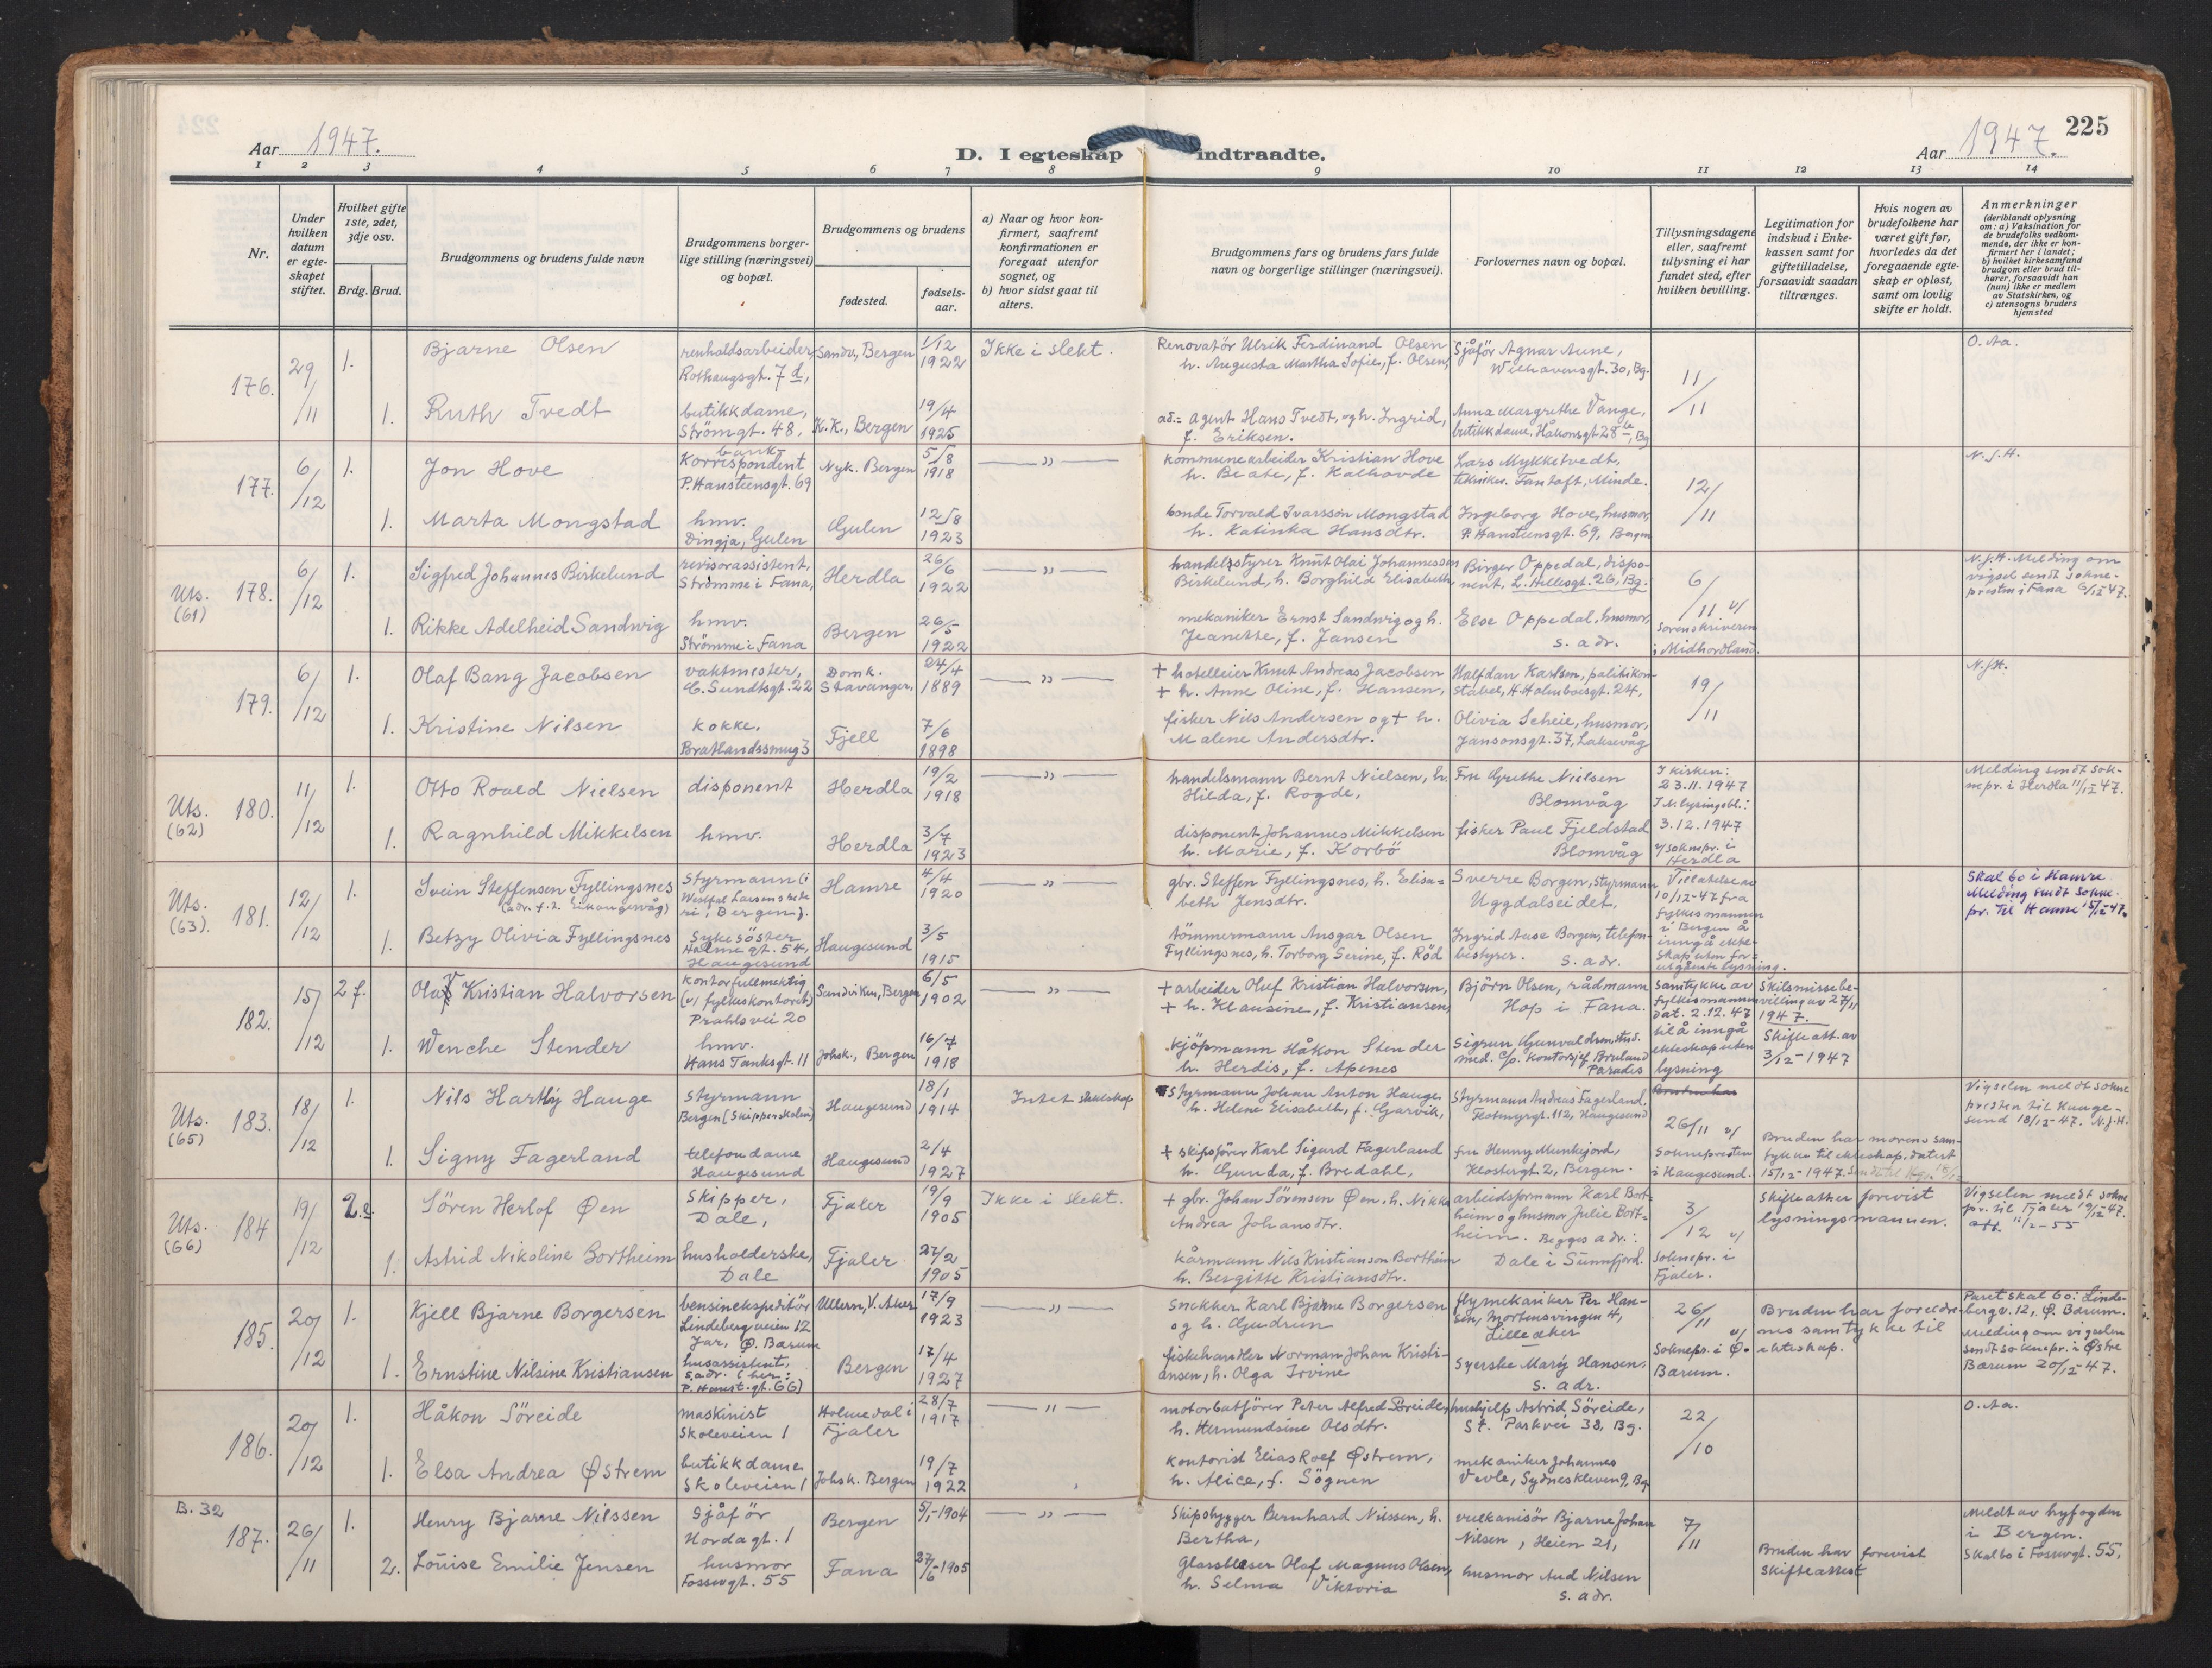 Aar 1947.
D. I egteskap indtraadte.
Aar 1947.
225
1 2 3 4 5 6 7 8 9 10 11 12 13 14
Nr.
Under hvilken datum er egteskapet stiftet.
Hvilket gifte 1ste, 2det, 3dje osv.
Brdg. Brud.
Brudgommens og brudens fulde navn
Brudgommens borgerlige stilling (næringsvei) og bopæl.
Brudgommens og brudens
fødested.
fødselsaar.
a) Naar og hvor konfirmert, saafremt konfirmationen er foregaat utenfor sognet, og
b) hvor sidst gaat til alters.
Brudgommens fars og brudens fars fulde navn og borgerlige stillinger (næringsvei).
Forlovernes navn og bopæl.
Tillysningsdagene eller, saafremt tillysning ei har fundet sted, efter hvilken bevilling.
Legitimation for indskud i Enkekassen samt for giftetilladelse, forsaavidt saadan tiltrænges.
Hvis nogen av brudefolkene har været gift før, hvorledes da det foregaaende egteskap er opløst, samt om lovlig skifte er holdt.
Anmerkninger
(deriblandt oplysning om: a) Vaksination for de brudefolks vedkommende, der ikke er konfirmert her i landet; b) hvilket kirkesamfund brudgom eller brud tilhører, forsaavidt han (hun) ikke er medlem av Statskirken, og c) utensogns bruders hjemsted
176. 29/11 1. Bjarne Olsen
renholdsarbeider, Rothaugsgt. 7 d,
Sandv., Bergen 1/12 1922
Ikke i slekt.
Renovatör Ulrik Ferdinand Olsen h. Augusta Martha Sofie, f. Olsen,
Sjåför Agnar Aune, Welhavensgt. 30, Bg.
11/11
O. Aa.
1. Ruth Tvedt
butikkdame, Strömgt. 48,
K.K., Bergen 19/4 1925
ad.= agent Hans Tvedt, og h. Ingrid, f. Eriksen.
Anna Margrethe Vange, butikkdame. Håkonsgt 28 b, Bg
177. 6/12 1. Jon Hove
bank-korrespondent P. Hansteensgt. 69
Nyk. Bergen 5/8 1918
— " —
kommunearbeider Kristian Hove h. Beate, f. Kalhovde
Lars Mykketvedt, tekniker. Fantoft, Minde.
12/11
N.J.H.
1. Marta Mongstad
hmv. Dingja, Gulen
Gulen 12/8 1923
bonde Torvald Ivarsson Mongstad h. Katinka Hansdtr.
Ingeborg Hove, husmor, P. Hansteensgt. 69, Bergen
Uts. (61) 178. 6/12 1. Sigfred Johannes Birkelund
revisorassistent, Strømme i Fana,
Herdla 26/6 1922
— " —
handelsstyrer Knut Olai Johannessen Birkelund, h. Borghild Elisabeth,
Birger Oppedal, disponent, L. Hillesgt. 26, Bg.
6/11 v/ Sorenskriveren i Midhordland.
N.J.H. Melding om vigsel sendt sokneprestem i Fana 6/12 47.
1. Rikke Adelheid Sandwig
hmv. Strömme i Fana
Bergen 26/5 1922
mekaniker Ernst Sandwig og h. Jeanette, f. Jansen
Else Oppedal, husmor, s. adr.
179. 6/12 1. Olaf Bang Jacobsen
vaktmester, C. Sundtsgt. 22
Domk. Stavanger, 24/4 1889
— " —
+ hotelleier Knut Andreas Jacobsen + h. Anne Oline, f. Hansen,
Halfdan Karlsen, politikonstabel, H. Holmboesgt. 24,
19/11
N.J.H.
1. Kristine Nilsen
kokke. Bratlandssmug 3
Fjell 7/6 1898
fisker Nils Andersen og + h. Malene Andersdtr.
Olivia Scheie, husmor, Jansonsgt. 37, Laksevåg
Uts. (62) 180. 11/12 1. Otto Roald Nielsen
disponent
Herdla 19/2 1918
— " —
handelsmann Bernt Nielsen, h. Hilda, f. Rogde,
Fru Grethe Nielsen Blomvåg
I kirken: 23.11.1947 I N. lysingsbl.: 3.12.1947 v/ soknepr. i Herdla
Melding sendt soknepr. i Herdla 11/12 47.
1. Ragnhild Mikkelsen
hmv.
Herdla 3/7 1923
disponent Johannes Mikkelsen h. Marie, f. Korbö
fisker Paul Fjeldstad Blomvåg
Uts. (63). 181. 12/12 1. Svein Steffensen Fyllingsnes (adr. f.t. Eikangervåg)
Styrmann (i Westfal Larsens rederi, Bergen).
Hamre 4/4 1920
— " —
gbr. Steffen Fyllingsnes, h. Elisabeth Jensdtr.
Sverre Borgen, styrmann Uggdalseidet,
Tillatelse av 10/12-47 fra fylkesmannen i Bergen å inngå ekteskap uten forutgående lysning.
Skal bo i Hamre Melding sendt sokne-pr. til Hamre 15/12-47.
1. Betzy Olivia Fyllingsnes
Sykesöster gt. 54, Haugesund
Haugesund 3/5 1915
tömmermann Ansgar Olsen Fyllingsnes, h. Torborg Serine, f. Röd
Ingrid Aase Borgen, telefonbestyrer. s. adr.
182. 15/12 2 f. Olav Kristian Halvorsen
Kontorfullmektig (v/ fylkeskontoret) Prahlsvei 20
Sandviken, Bergen 6/5 1902
— " —
+ arbeider Oluf Kristian Halvorsen, + h. Klausine, f. Kristiansen,
Björn Olsen, rådmann Hop i Fana.
Samtykke av fylkesmannen dat. 2.12.47 til å inngå ekteskap uten lysning
Skilsmissebevilling av 27/11 1947. Skifteatt. av 3/12-1947
1. Wenche Stender
hmv. Hans Tanksgt. 11
Johsk., Bergen 16/7 1918
kjöpmann Håkon Stender h. Herdis, f. Apenes
Sigrun Gunvaldsen, stud. med. c/o. kontorsjef Bruland Paradis
Uts. (65) 183. 18/12 1. Nils Hartly Hauge
styrmann Bergen (Skipperskolen)
Haugesund 18/1 1914
Intet slektskap
Styrmann Johan Anton Hauge h. Helene Elisabeth, f. Gjarvik,
Styrmann Andreas Fagerland, Flotmyrgt. 112, Haugesund
26/11 v/ Soknepresten i Haugesund.
Vigselen meldt soknepresten til Haugesund 18/12-47. N.J.H.
1. Signy Fagerland
telefondame Haugesund
Haugesund 2/4 1927
+ skipsförer Karl Sigurd Fagerland h. Gunda, f. Bredahl,
fru Henny Munkejord, Klostergt. 2, Bergen.
Bruden har morens samtykke til ekteskap, datert 15/12-1947.
Uts. (66) 184 19/12 2.e. Sören Herlof Øen
Skipper, Dale,
Fjaler 19/9 1905
Ikke i slekt.
+ gbr. Johan Sörensen Øen, h. Nikka Andrea Johansdtr.
arbeidsformann Karl Bortheim og husmor Julie Bortheim. Begges adr.: Dale i Sunnfjord.
3/12 v/ Soknepr. i Fjaler.
Skifteattes forevist lysningsmannen.
Vigselen meldt sokne pr. til Fjaler 19/12-47. att. 11/2-55
1. Astrid Nikoline Bortheim
husholderske, Dale
Fjaler 27/2 1905
kårmann Nils Kristianson Bortheim h. Bergitte Kristiansdtr.
185. 20/12 1. Kjell Bjarne Borgersen
bensinekspeditör Lindebergveien 12 Jar, Ø. Bærum
Ullern, V. Aker 17/9 1923
— " —
snekker Karl Bjarne Borgersen og h. Gudrun
flymekaniker Per Hansen, Mortensvingen 4, Lilleaker
26/11 v/ Soknepr. i Ø. Bærum.
Bruden har foreldrenes samtykke til ekteskap.
Paret skal bo: Lindebergv. 12, Ø. Bærum. Melding om vigselen sendt soknepr. i Østre Bærum 20/12-47.
1. Ernstine Nilsine Kristiansen
husassistent, s. adr. (her: P. Hanst. gt. 66)
Bergen 17/4 1927
fiskehandler Norman Johan Kristiansen, h. Olga Irvine
Syerske Mary Hansen, s. adr.
186. 20/12 1. Håkon Söreide
maskinist Skoleveien 1
Holmedal i Fjaler 28/7 1917
— " —
motorbatförer Peter Alfred Söreide, h. Hermundsine Olsdtr.
hushjelp Astrid Söreide, St. Parkvei 38, Bg.
22/10
O. Aa.
1. Elsa Andrea Østrem
butikkdame Skoleveien 1
Johsk. Bergen 19/7 1922
kontorist Elias Roef Østrem, h. Alice, f. Sögnen
mekaniker Johannes Vevle, Sydneskleven 9, Bg
B. 32
187. 26/11 1. Henry Bjarne Nilssen
Sjåför Hordagt. 1
Bergen 5/1-1904
— " —
Skipsbygger Bernhard Nilssen, h. Bertha,
vulkanisör Bjarne Johan Nilsen, Heien 21,
7/11
Meldt av byfogden i Bergen. Skal bo i Fosswgt. 55,
2. Louise Emilie Jensen
husmor Fosswgt. 55
Fana 27/6-1905
Glassbleser Olaf Magnus Olsen, h. Selma Viktoria
husmor Aud Nilsen s. adr.
Bruden har forevist skifteattest